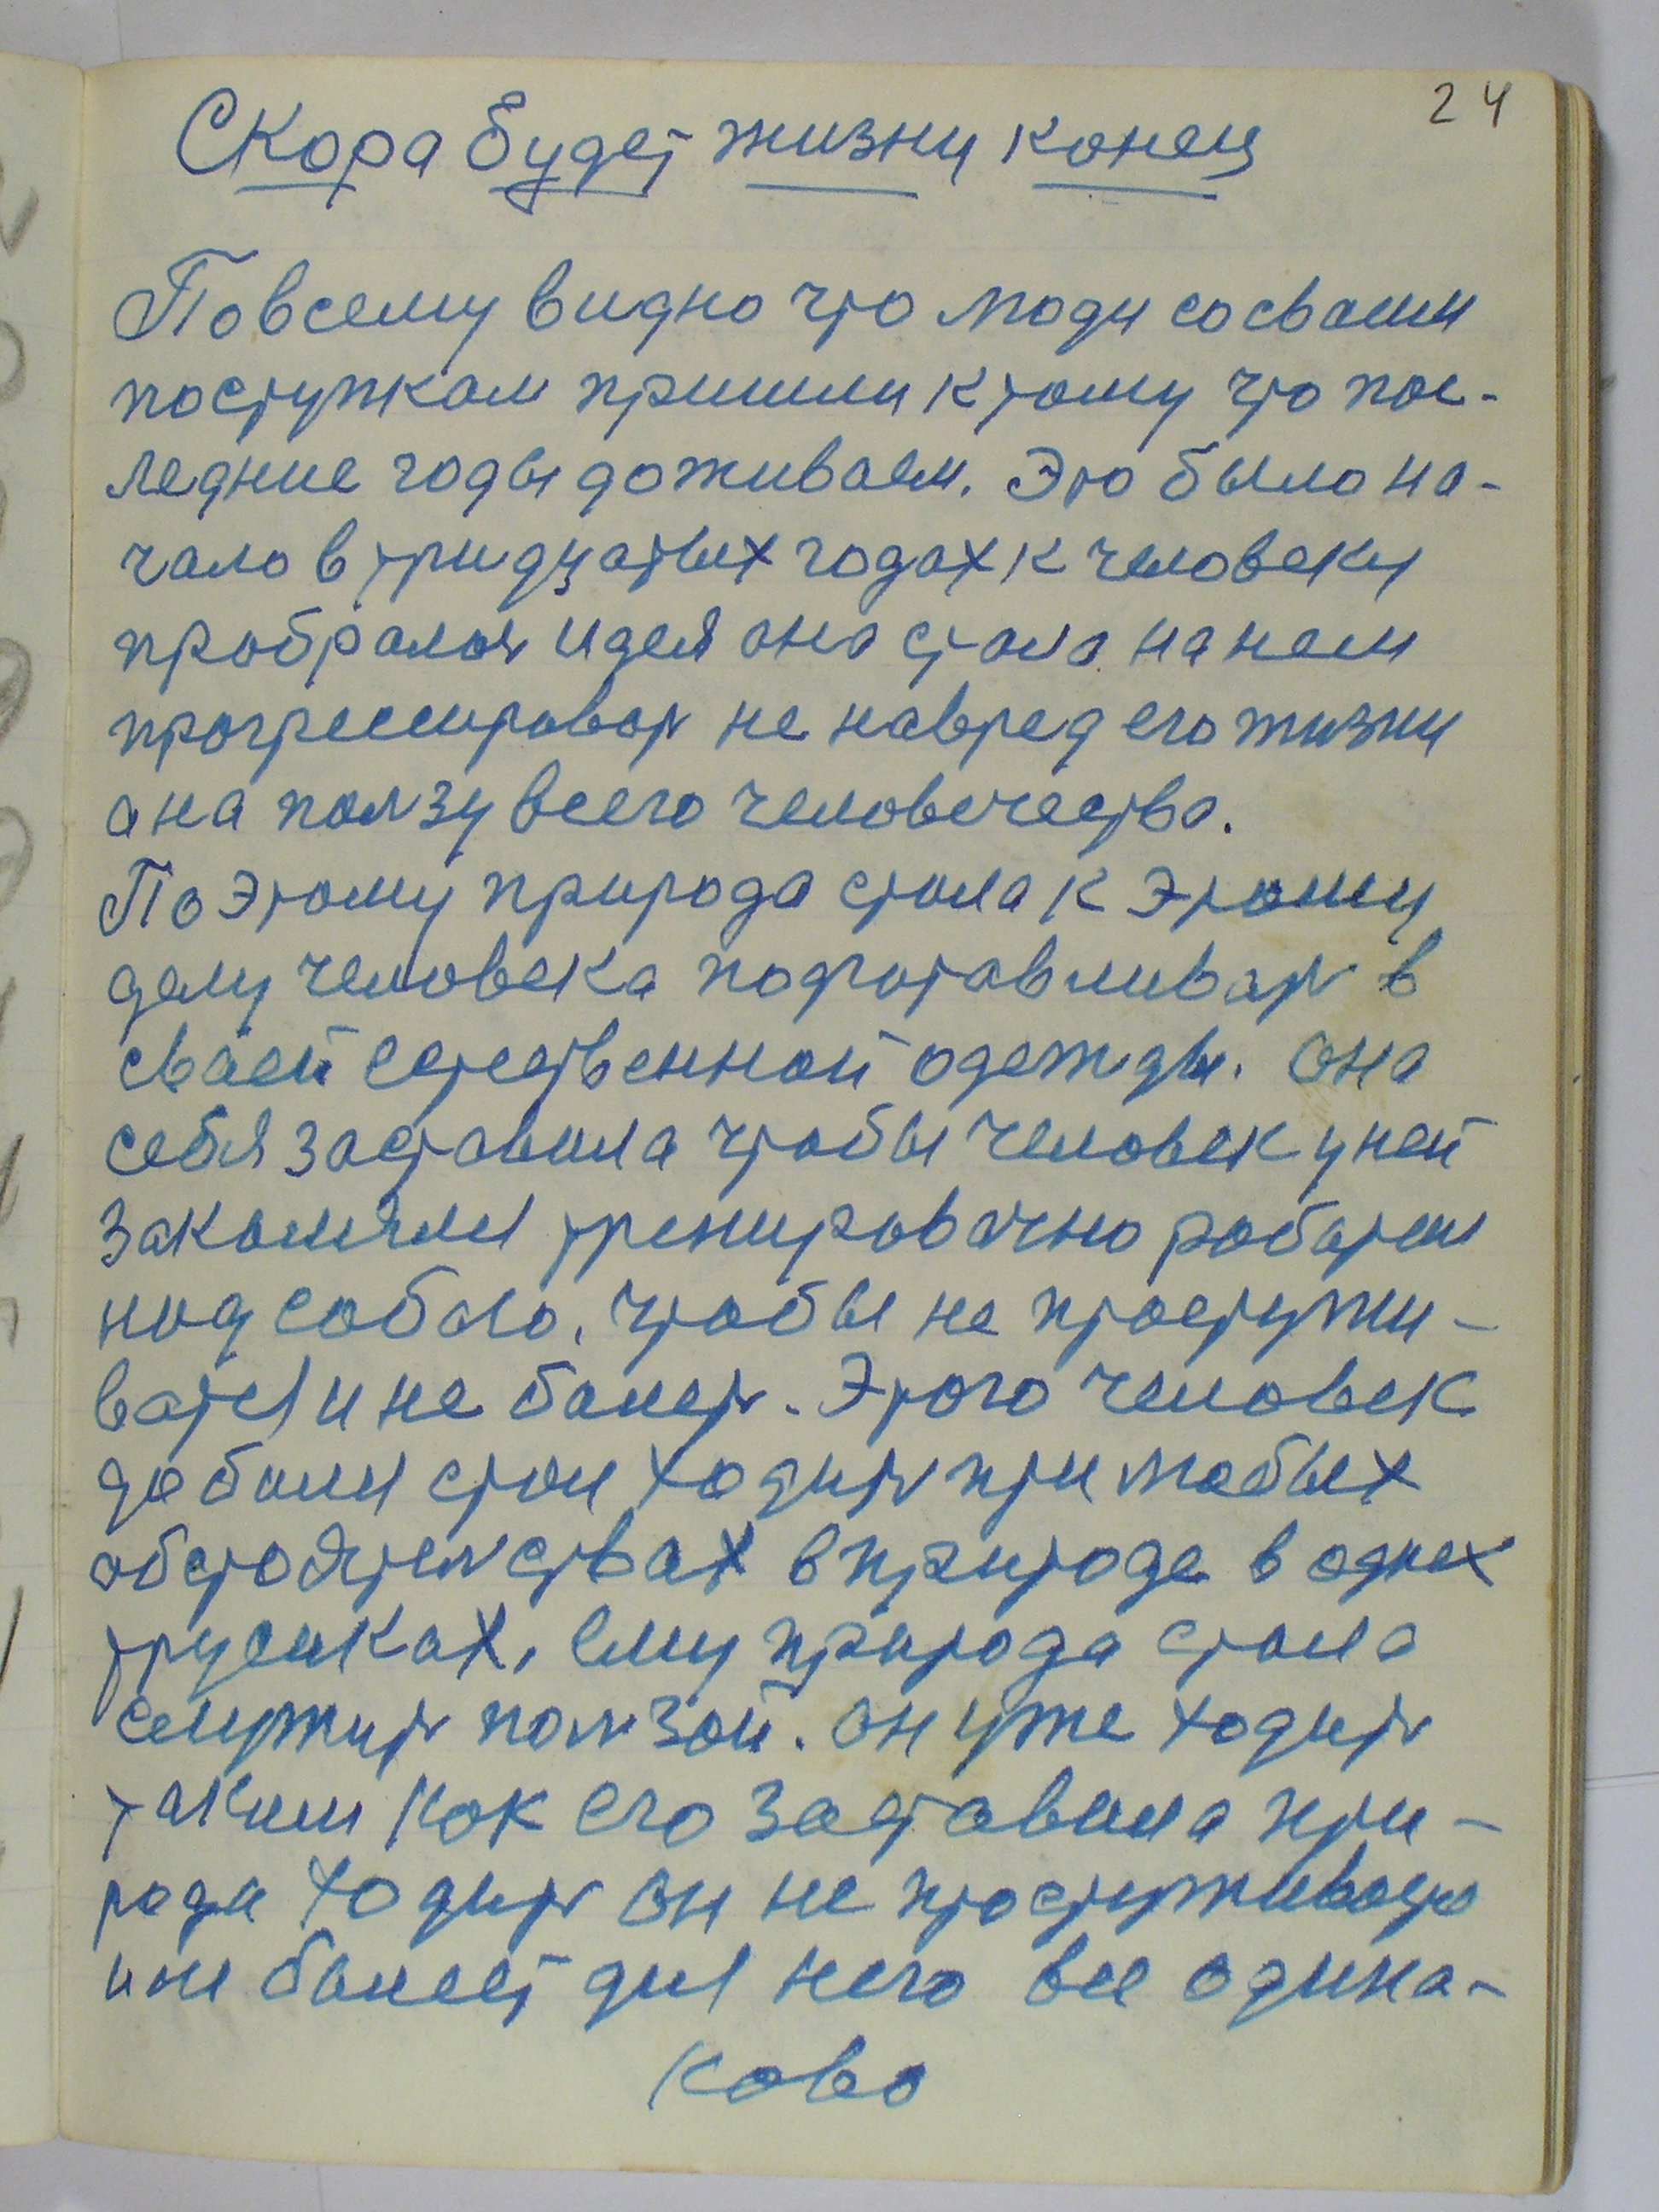 24
Скора будет жизни конец
По всему видно что люди со сваими
поступкам пришли к тому что пос-
ледние годы доживаем. Это было на-
чало в тридцатых годах к человеку
пробралась идея она стала на нем
прогрессировать не навред его жизни
а на ползу всего человечества.
Поэтому природа стала к этому
делу человека подготавливать в
сваей естественной одежды. Она
себя заставила чтобы человек у ней
закалялся тренировачно работал
над собаю. чтобы не простужи-
ватся и не болеть. Этого человек
добился стал ходить при любых
обстоятельствах в природе в одних
трусиках, ему природа стала
служить ползой. он уже ходить
таким как его заставила при-
рода ходить он не простуживаетс
и не балеет для него все одина-
ково